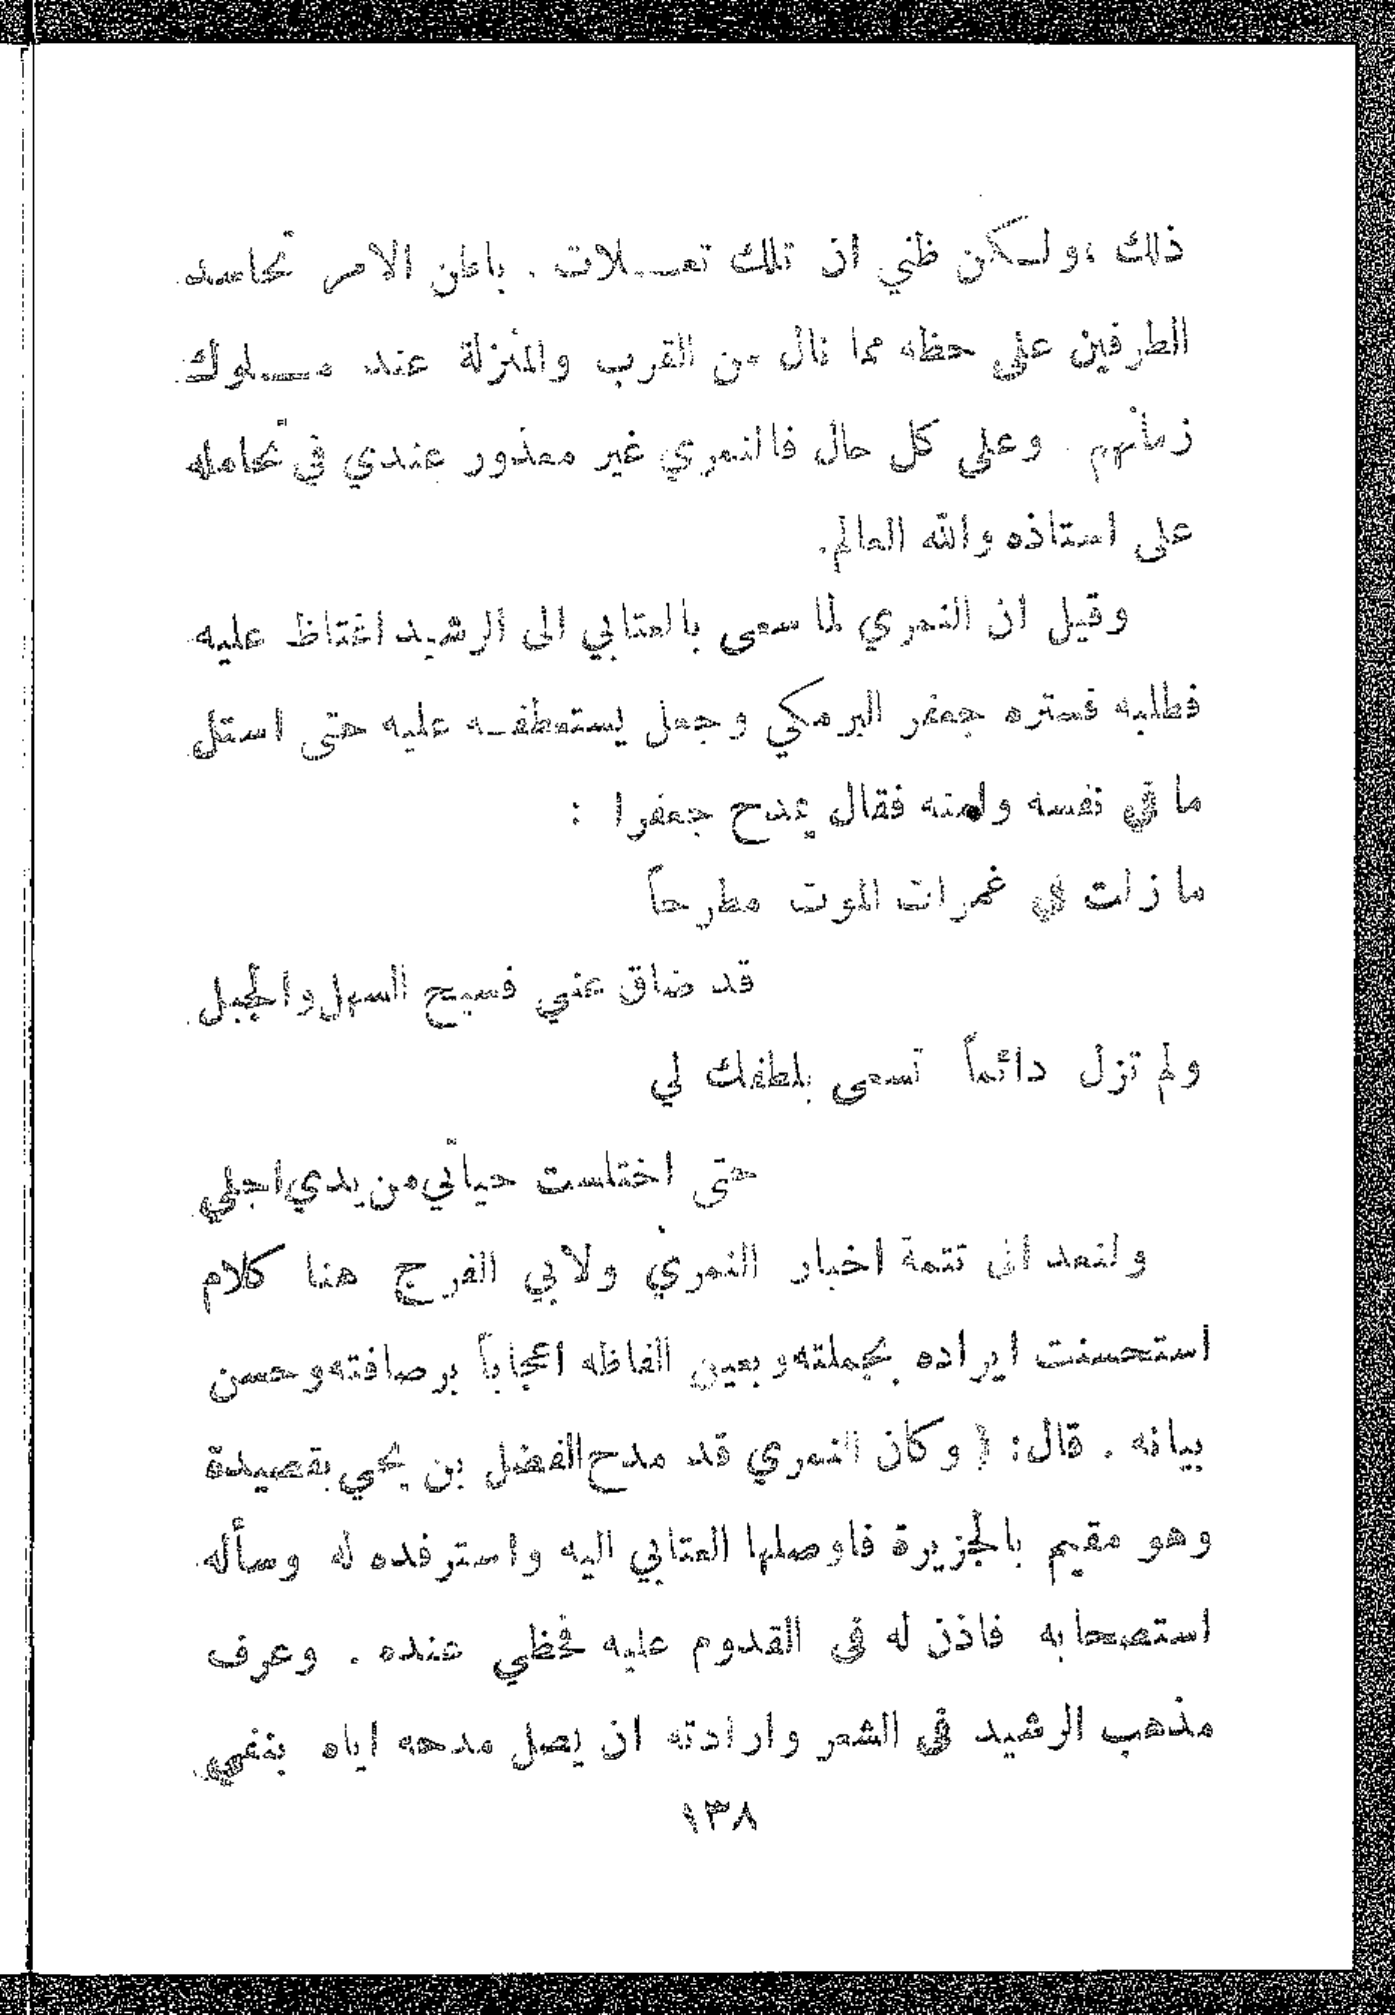 ذلك ،ولكن ظني ان تلك تعــلات . باطن الامر تحاسد
الطرفين على حظه مما نال من القرب والمنزلة عند مــلوك
زمانهم . وعلى كل حال فالنمري غير معذور عندي في تحامله
على استاذه والله العالم.
وقيل ان النمري لما سعى بالعتابي الى الرشيد اغتاظ عليه
فطلبه فستره جعفر البرمكي وجعل يستعطفــه عليه حتى استل
ما في نفسه وامنه فقال يمدح جعفرا :
ما زلت في غمرات الموت مطرحاً
قد ضاق عني فسيح السهل والجبل
ولم تزل دائماً تسعى بلطفك لي
حتى اختلست حياتي من يدي اجلي
ولنعد الى تتمة اخبار النمري ولابي الفرج هنا كلام
استحسنت ايراده بجملته وبعين الفاظه اعجاباً برصافته وحسن
بيانه . قال: ( وكان النمري قد مدح الفضل بن يحيى بقصيدة
وهو مقيم بالجزيرة فاوصلها العتابي اليه واسترفده له وسأله
استصحابه فاذن له في القدوم عليه فحظي عنده . وعرف
مذهب الرشيد في الشعر وارادته ان يصل مدحه اياه بنفي
١٣٨